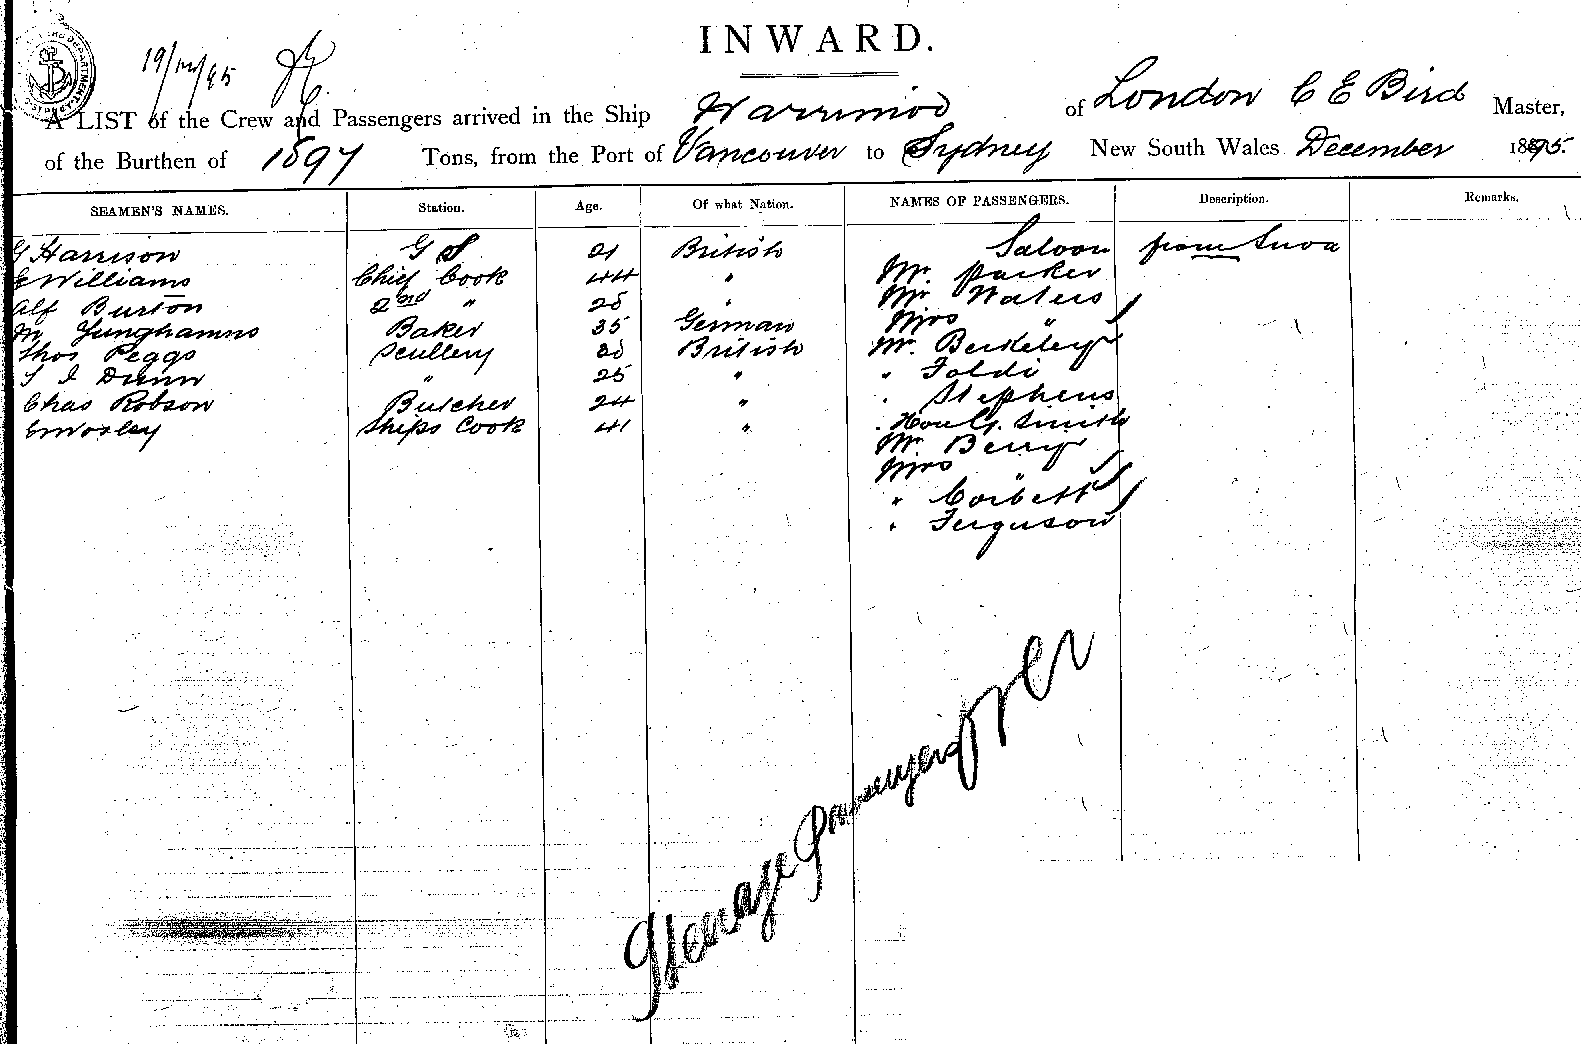 INWARD.
19/12/95
A LIST of the Crew and Passengers arrived in the Ship Warrimoo of London C E Bird Master,
of the Burthen of 1897 Tons, from the Port of Vancouver to Sydney New South Wales December 1895.
SEAMEN'S NAMES. Station. Age. Of what Nation. NAMES OF PASSENGERS. Description. Remarks.
G Harrison G S 21 British Saloon from Suva
E Williams Chief Cook 44 " Mr. Parker
Alf Burton 2nd " 25 " Mr Waters
M Junghamns Baker 35 German Mrs "
Thos Peggs Scullery 20 British Mr. Berkeley
S I Dunn " 25 " " Foldi
Chas Robson Butcher 24 " " Stephens
E Worley Ships Cook 41 " " Hon G. Smith
Mr. Berry
Mrs "
" Corbett
" Ferguson
Steerage Passengers over